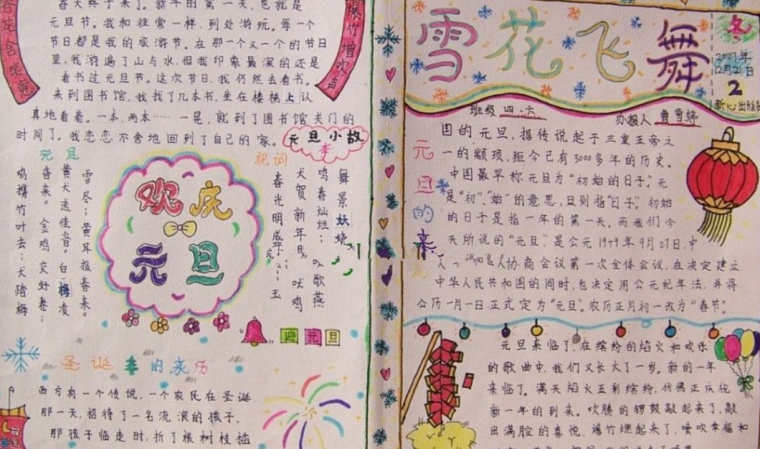 春天终于来了。新年的第一天,也就是
元旦节。我和往常一样,到处游玩。每一个
节日都是我的旅游节。在那一个又一个的节日
里,我游遍了山与水,但我印象最深的还是
看书过元旦节。这次节日,我仍然去看书。
来到图书馆,我找了几本书,坐在楼梯上认
真地看着。一本两本……一晃,就到了图书馆关门的
时间了。我恋恋不舍地回到了自己的家。
元旦小故事
元旦
雪尽:黄耳报春来。
黄犬送佳音。白梅凌
喜来。金鸡交好卷:
鸡捧竹叶去:犬踏梅
欢庆
元旦
祝词
舞景妖娆
鸡喜灿烂:歌燕
犬贺新年
喜光明
迎元旦
圣诞的来历
西方有一个传说,一个农民在圣诞
那一天,招待了一名流浪的孩子,
那孩子临走时,折了根树枝插
雪花飞舞
冬
2007年
12月21日
2
新心出版社
班级四.六
办报人
元旦的来
国的元旦,据传说起于三皇五帝之
一的颛顼,距今已有3000多年的历史。
中国最早称元旦为“初始的日子”。元
是“初”,“始”的意思,旦则指“日子”。初始
的日子是指一年的第一天。而我们今
天所说的“元旦”,是公元1949年9月27日,中
人协商会议第一次全体会议,在决定建立
中华人民共和国的同时,也决定用公元纪年法,并将
公历一月一日正式定为“元旦”。农历正月初一改为“春节”。
元旦来临了,在缤纷的焰火和欢乐
的歌曲中,我们又长大了一岁。新的一年
来临了。满天焰火五彩缤纷,仿佛正庆祝
新一年的到来。欢腾的锣鼓敲起来了,敲
出满腔的喜悦,爆竹燃起来了,噗吹幸福和